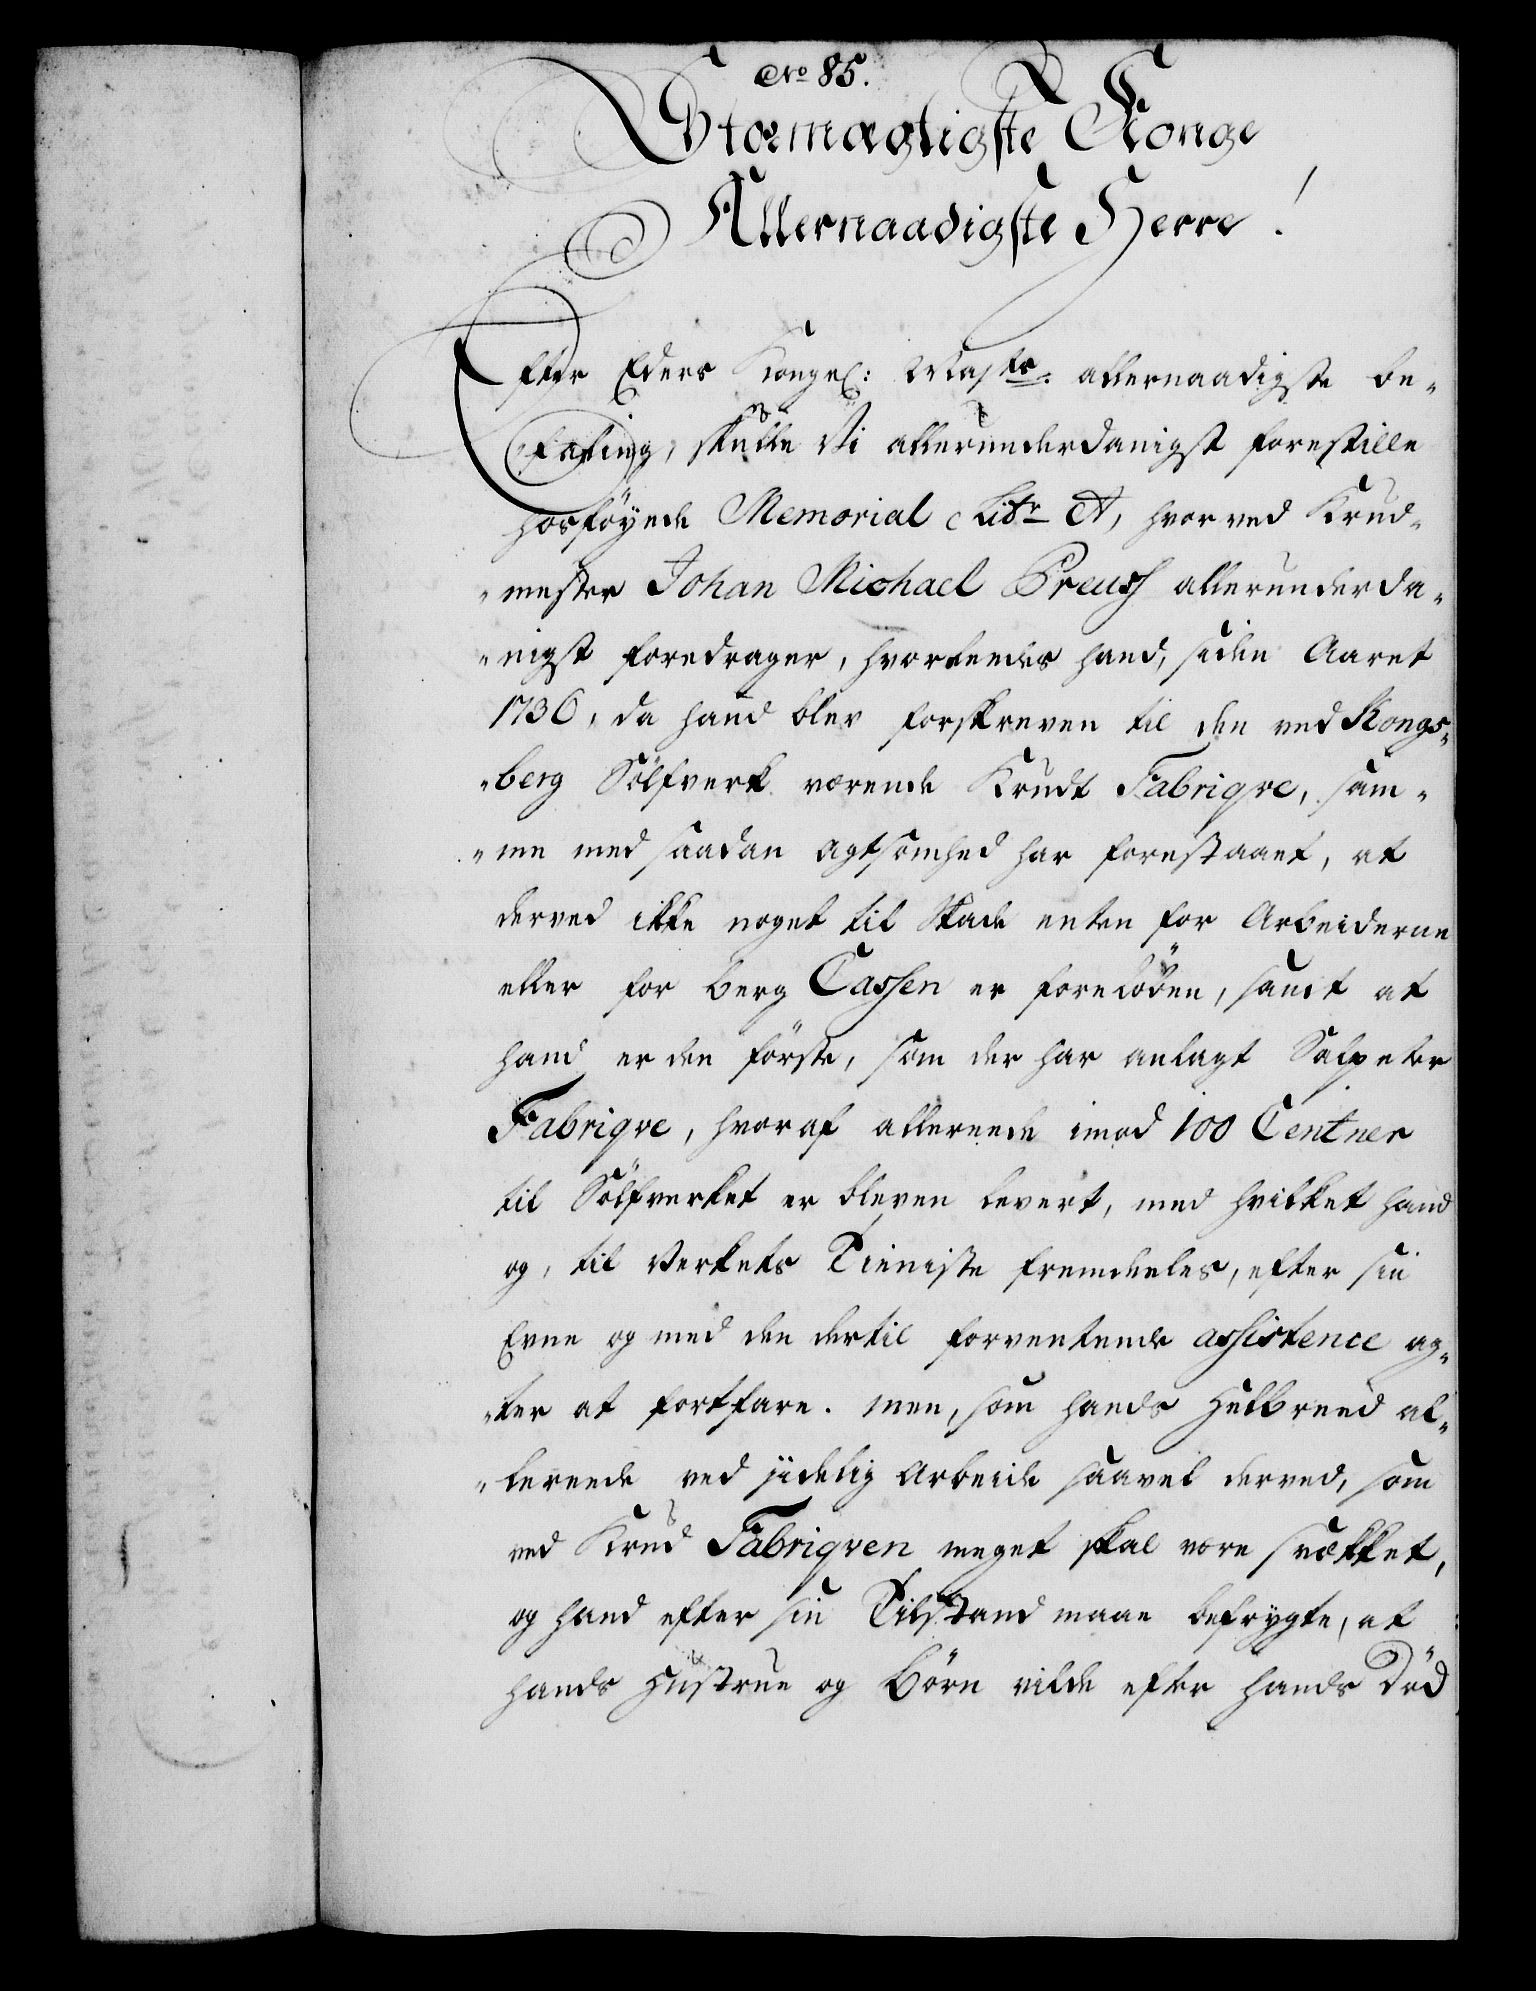 No 85.
Stormægtigste Konge
Allernaadigste Herre!
Efter Eders Kongel: Majts. allernaadigste be-
faling, skulle Vi allerunderdanigst forestille
hosföyede Memorial Litr A, hvorved Krud-
"mester Johan Michael Preusch allerunderda-
"nigst foredrager, hvorledes hand, siden Aaret
1736, da hand blev forskreven til den ved Kongs-
"berg Sölfverk værende Krudt Fabriqve, sam-
"me med saadan agtsomhed har forestaaet, at
derved ikke noget til Skade enten for Arbeiderne
eller for berg Cassen er foreløben, samt at
hand er den förste, som der har anlagt Salpeter
Fabriqve, hvoraf allereede imod 100 Centner
til Sölfverket er bleven levert, med hvilket hand
og, til Verkets Tieniste fremdeeles, efter sin
Evne og med den dertil forventende assistence ag-
"ter at fortfare. men, som hands Helbreed al-
"lereede ved jidelig Arbeide saavel derved, som
ved Krud Fabriqven meget skal være svækket,
og hand efter sin Tilstand maae befrygte, at
hands Hustrue og Börn vilde efter hands Död